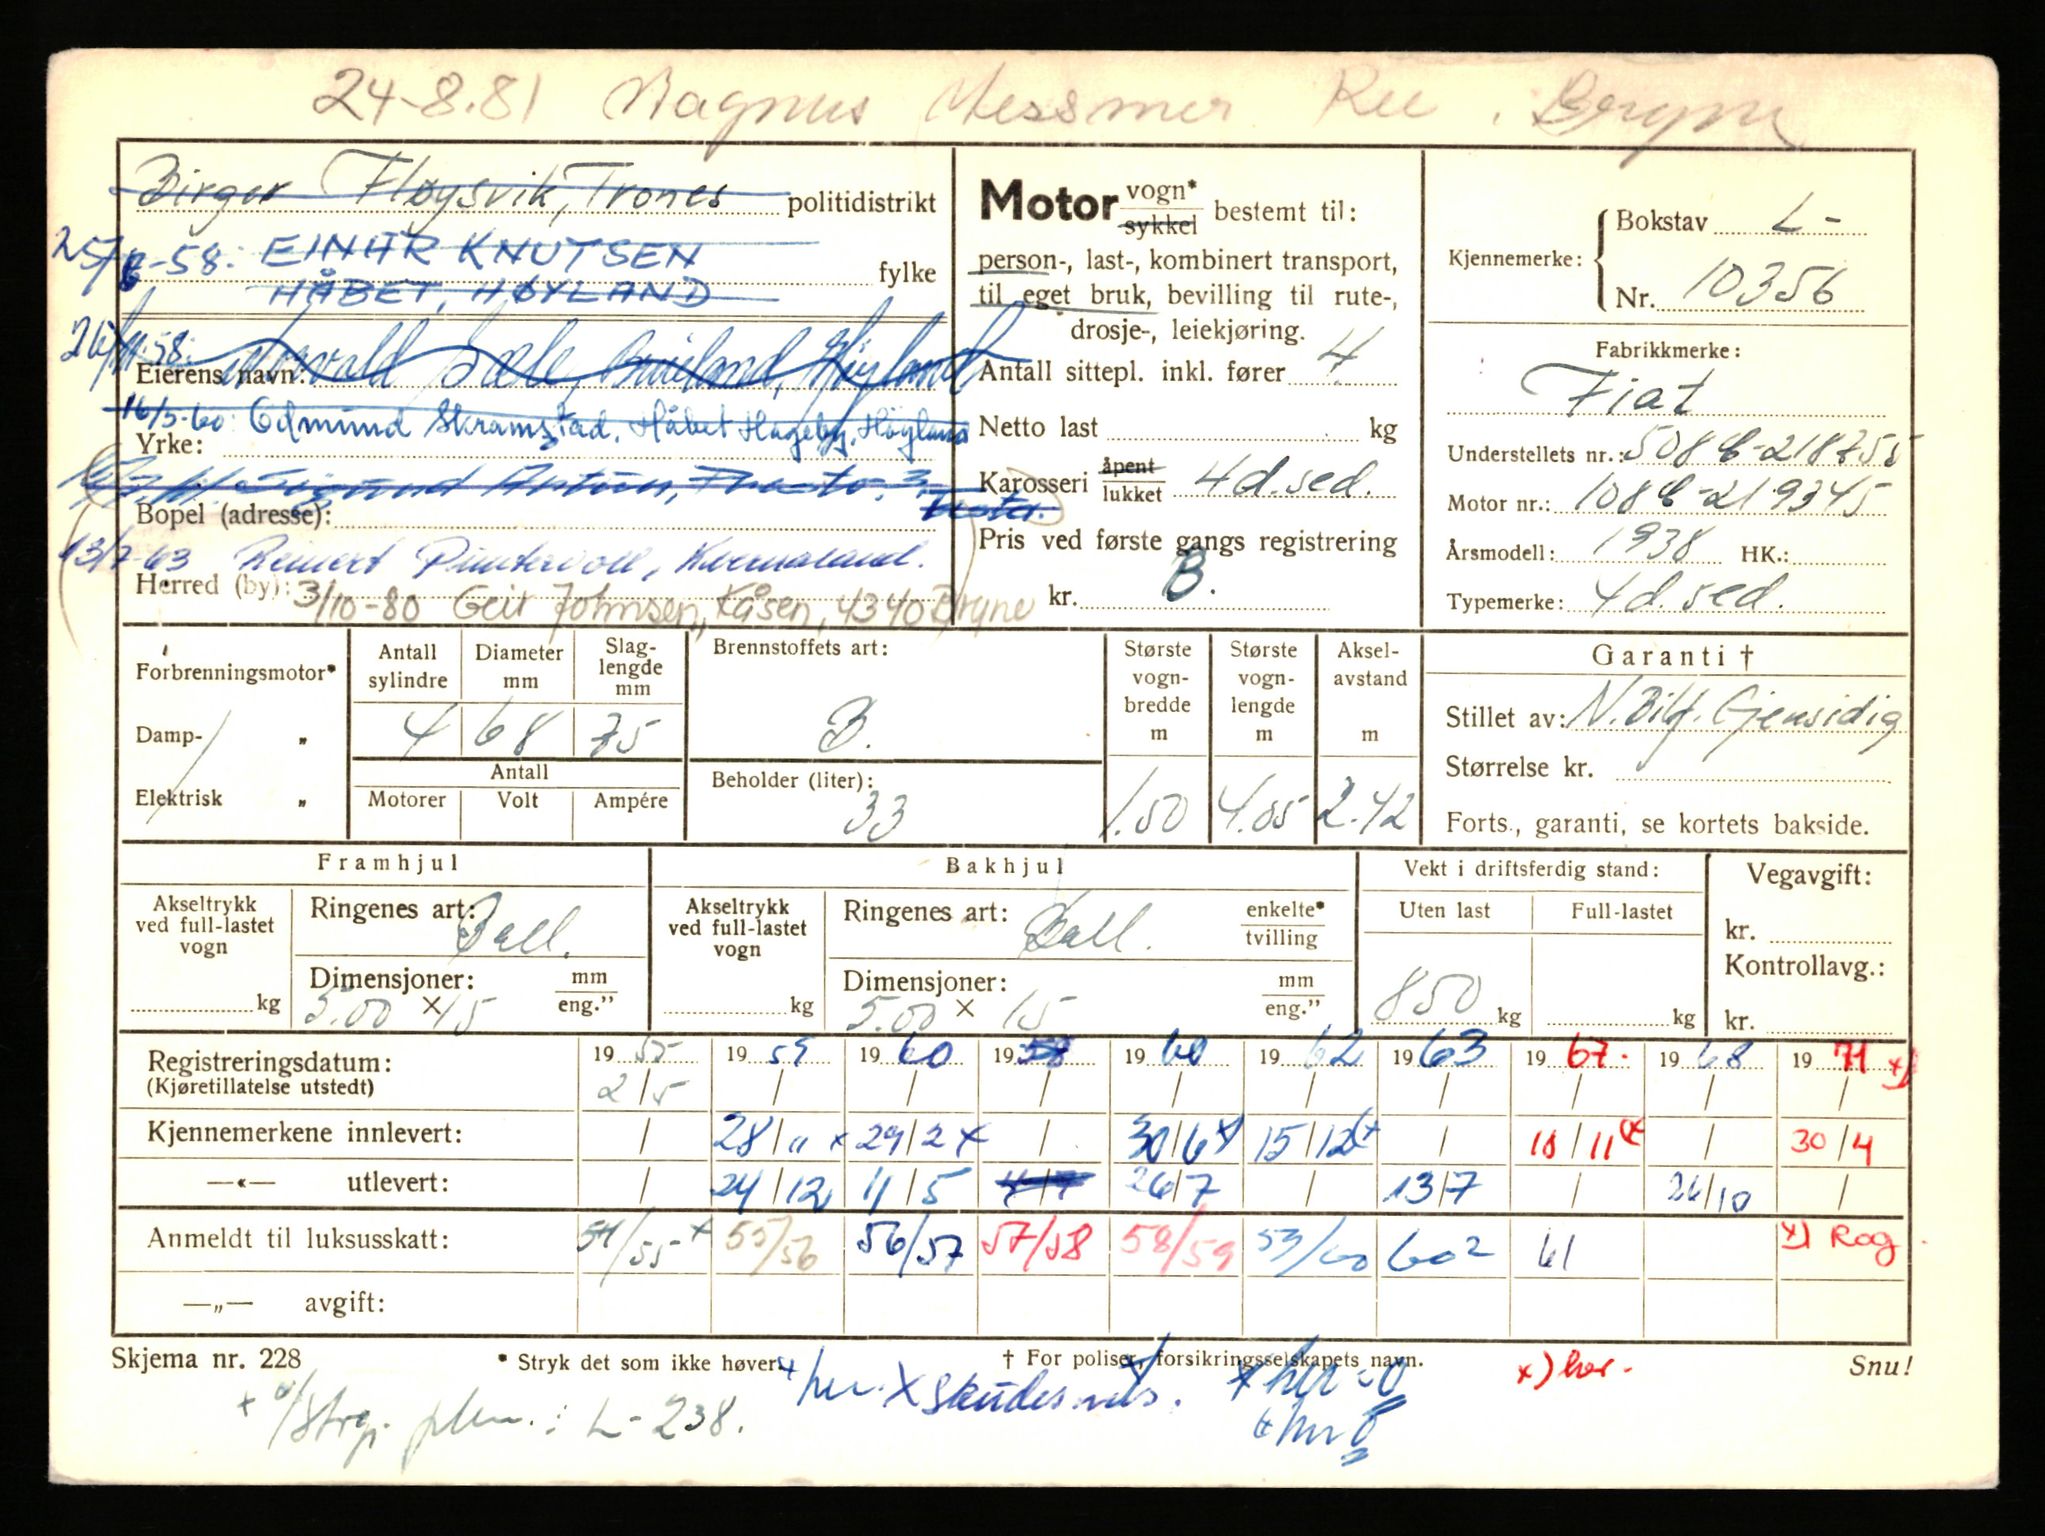 24-8.81 Magnus Messmer Ree . Bryne
Birger Fløysvik, Trones politidistrikt
25/6-58: EINAR KNUTSEN fylke
HÅBET, HØYLAND
26/11-58:
Eierens navn:
16/5-60: Edmund Skramstad, Håbet Hageby, Høyland
Yrke:
Sigurd
Bopel (adresse):
13/7-63 Reinert Puntervoll, Kvernaland.
Herred (by): 3/10-80 Geir Johnsen, Kåsen, 4340 Bryne
Motor vogn* / sykkel bestemt til:
person-, last-, kombinert transport,
til eget bruk, bevilling til rute-,
drosje-, leiekjøring.
Antall sittepl. inkl. fører 4
Netto last kg
Karosseri åpent / lukket 4 d. sed.
Pris ved første gangs registrering
kr. B.
Kjennemerke: Bokstav L-
Nr. 10356
Fabrikkmerke:
Fiat
Understellets nr.: 508 C-218755
Motor nr.: 108 C-219345
Årsmodell: 1938 HK.:
Typemerke: 4 d. sed.
Forbrenningsmotor*
Damp- „
Elektrisk „
Antall sylindre Diameter mm Slag-lengde mm
4 68 75
Antall
Motorer Volt Ampére
Brennstoffets art:
B.
Beholder (liter):
33
Største vogn-bredde m Største vogn-lengde m Aksel-avstand m
1.50 4.05 2.42
Garanti †
Stillet av: N. Bilf. Gjensidig
Størrelse kr.
Forts., garanti, se kortets bakside.
Framhjul
Akseltrykk ved full-lastet vogn kg
Ringenes art: Ball.
Dimensjoner: mm / eng.”
5.00 × 15
Bakhjul
Akseltrykk ved full-lastet vogn kg
Ringenes art: Ball. enkelte* / tvilling
Dimensjoner: mm / eng.”
5.00 × 15
Vekt i driftsferdig stand:
Uten last Full-lastet
850 kg kg
Vegavgift:
kr.
Kontrollavg.:
kr.
Registreringsdatum: 19 55 19 59 19 60 19 58 19 60 19 62 19 63 19 67. 19 68 19 71 x)
(Kjøretillatelse utstedt) 2/5 / / / / / / / / /
Kjennemerkene innlevert: / 28/11 x 29/2 x / 30/6 x 15/12 x / 10/11 x / 30/4
—«— utlevert: / 24/12 11/5 4/7 26/7 / 13/7 / 26/10 /
Anmeldt til luksusskatt: 54/55 x 55/56 56/57 57/58 58/59 59/60 602 61 x) Rog.
—„— avgift:
Skjema nr. 228 * Stryk det som ikke høver. † For poliser, forsikringsselskapets navn. Snu!
+ her. X Skudesnes. x her x) her.
L-238.